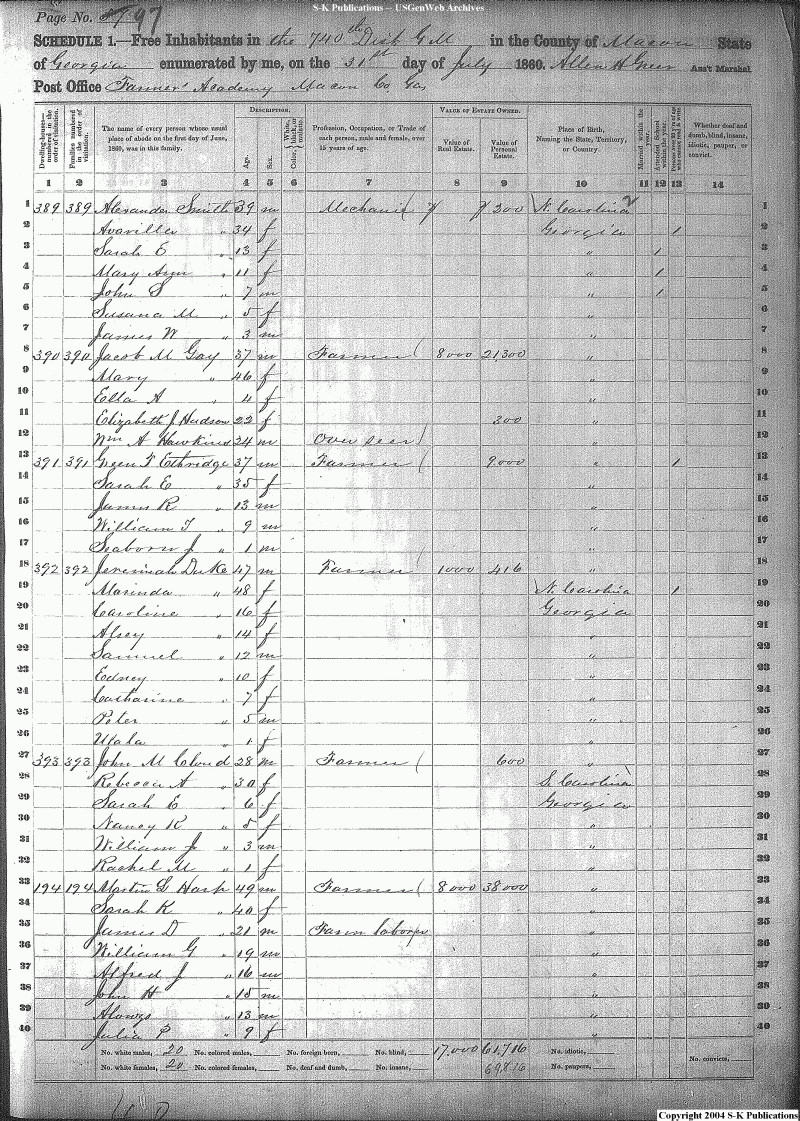 S-K Publications -- USGenWeb Archives
Page No. 97
SCHEDULE 1.—Free Inhabitants in the 740th Dist G M in the County of Macon State
of Georgia enumerated by me, on the 31st day of July 1860. Allen H Greer Ass't Marshal
Post Office Farmers' Academy Macon Co. Gas
Dwelling-houses—numbered in the order of visitation.
Families numbered in the order of visitation.
The name of every person whose usual place of abode on the first day of June, 1860, was in this family.
DESCRIPTION.
Age.
Sex.
Color, White, black, or mulatto.
Profession, Occupation, or Trade of each person, male and female, over 15 years of age.
VALUE OF ESTATE OWNED.
Value of Real Estate.
Value of Personal Estate.
Place of Birth, Naming the State, Territory, or Country.
Married within the year.
Attended School within the year.
Whether deaf and dumb, blind, insane, idiotic, pauper, or convict.
1 2 3 4 5 6 7 8 9 10 11 12 13 14
1 389 389 Alexander Smith 39 m Mechanic 300 N. Carolina 1
2 Avarilla " 34 f Georgia 1 2
3 Sarah E " 13 f " 1 3
4 Mary Ann " 11 f " 1 4
5 John S " 7 m " 1 5
6 Susana M " 5 f " 6
7 James W " 3 m " 7
8 390 390 Jacob M Gay 37 m Farmer 8000 21,300 " 8
9 Mary " 46 f " 9
10 Ella A " 4 f " 10
11 Elizabeth J Hudson 22 f 300 " 11
12 Wm A Hawkins 24 m Over seer " 12
13 391 391 Green T Ethridge 37 m Farmer 9,000 " 1 13
14 Sarah E " 35 f " 14
15 James R " 13 m " 15
16 William T " 9 m " 16
17 Seaborn J " 1 m " 17
18 392 392 Jeremiah Duke 47 m Farmer 1000 416 " 18
19 Marinda " 48 f N. Carolina 1 19
20 Caroline " 16 f Georgia 20
21 Alsey " 14 f " 21
22 Samuel " 12 m " 22
23 Edney " 10 f " 23
24 Catharine " 7 f " 24
25 Peter " 5 m " 25
26 Utala " 1 f " 26
27 393 393 John M Cloud 28 m Farmer 600 " 27
28 Rebecca A " 30 f S. Carolina 28
29 Sarah E " 6 f Georgia 29
30 Nancy K " 5 f " 30
31 William J " 3 m " 31
32 Rachel M " 1 f " 32
33 194 194 Martin L Harp 49 m Farmer 8000 38000 " 33
34 Sarah K " 40 f " 34
35 James D " 21 m Farm laborer " 35
36 William G " 19 m " 36
37 Alfred J " 16 m " 37
38 John H " 15 m " 38
39 Alonzo " 13 m " 39
40 Julia P " 9 f " 40
No. white males, 20 No. colored males, No. foreign born, No. blind, 17,000 61,716 No. idiotic,
No. white females, 20 No. colored females, No. deaf and dumb, No. insane, 69,816 No. paupers, No. convicts,
Copyright 2004 S-K Publications